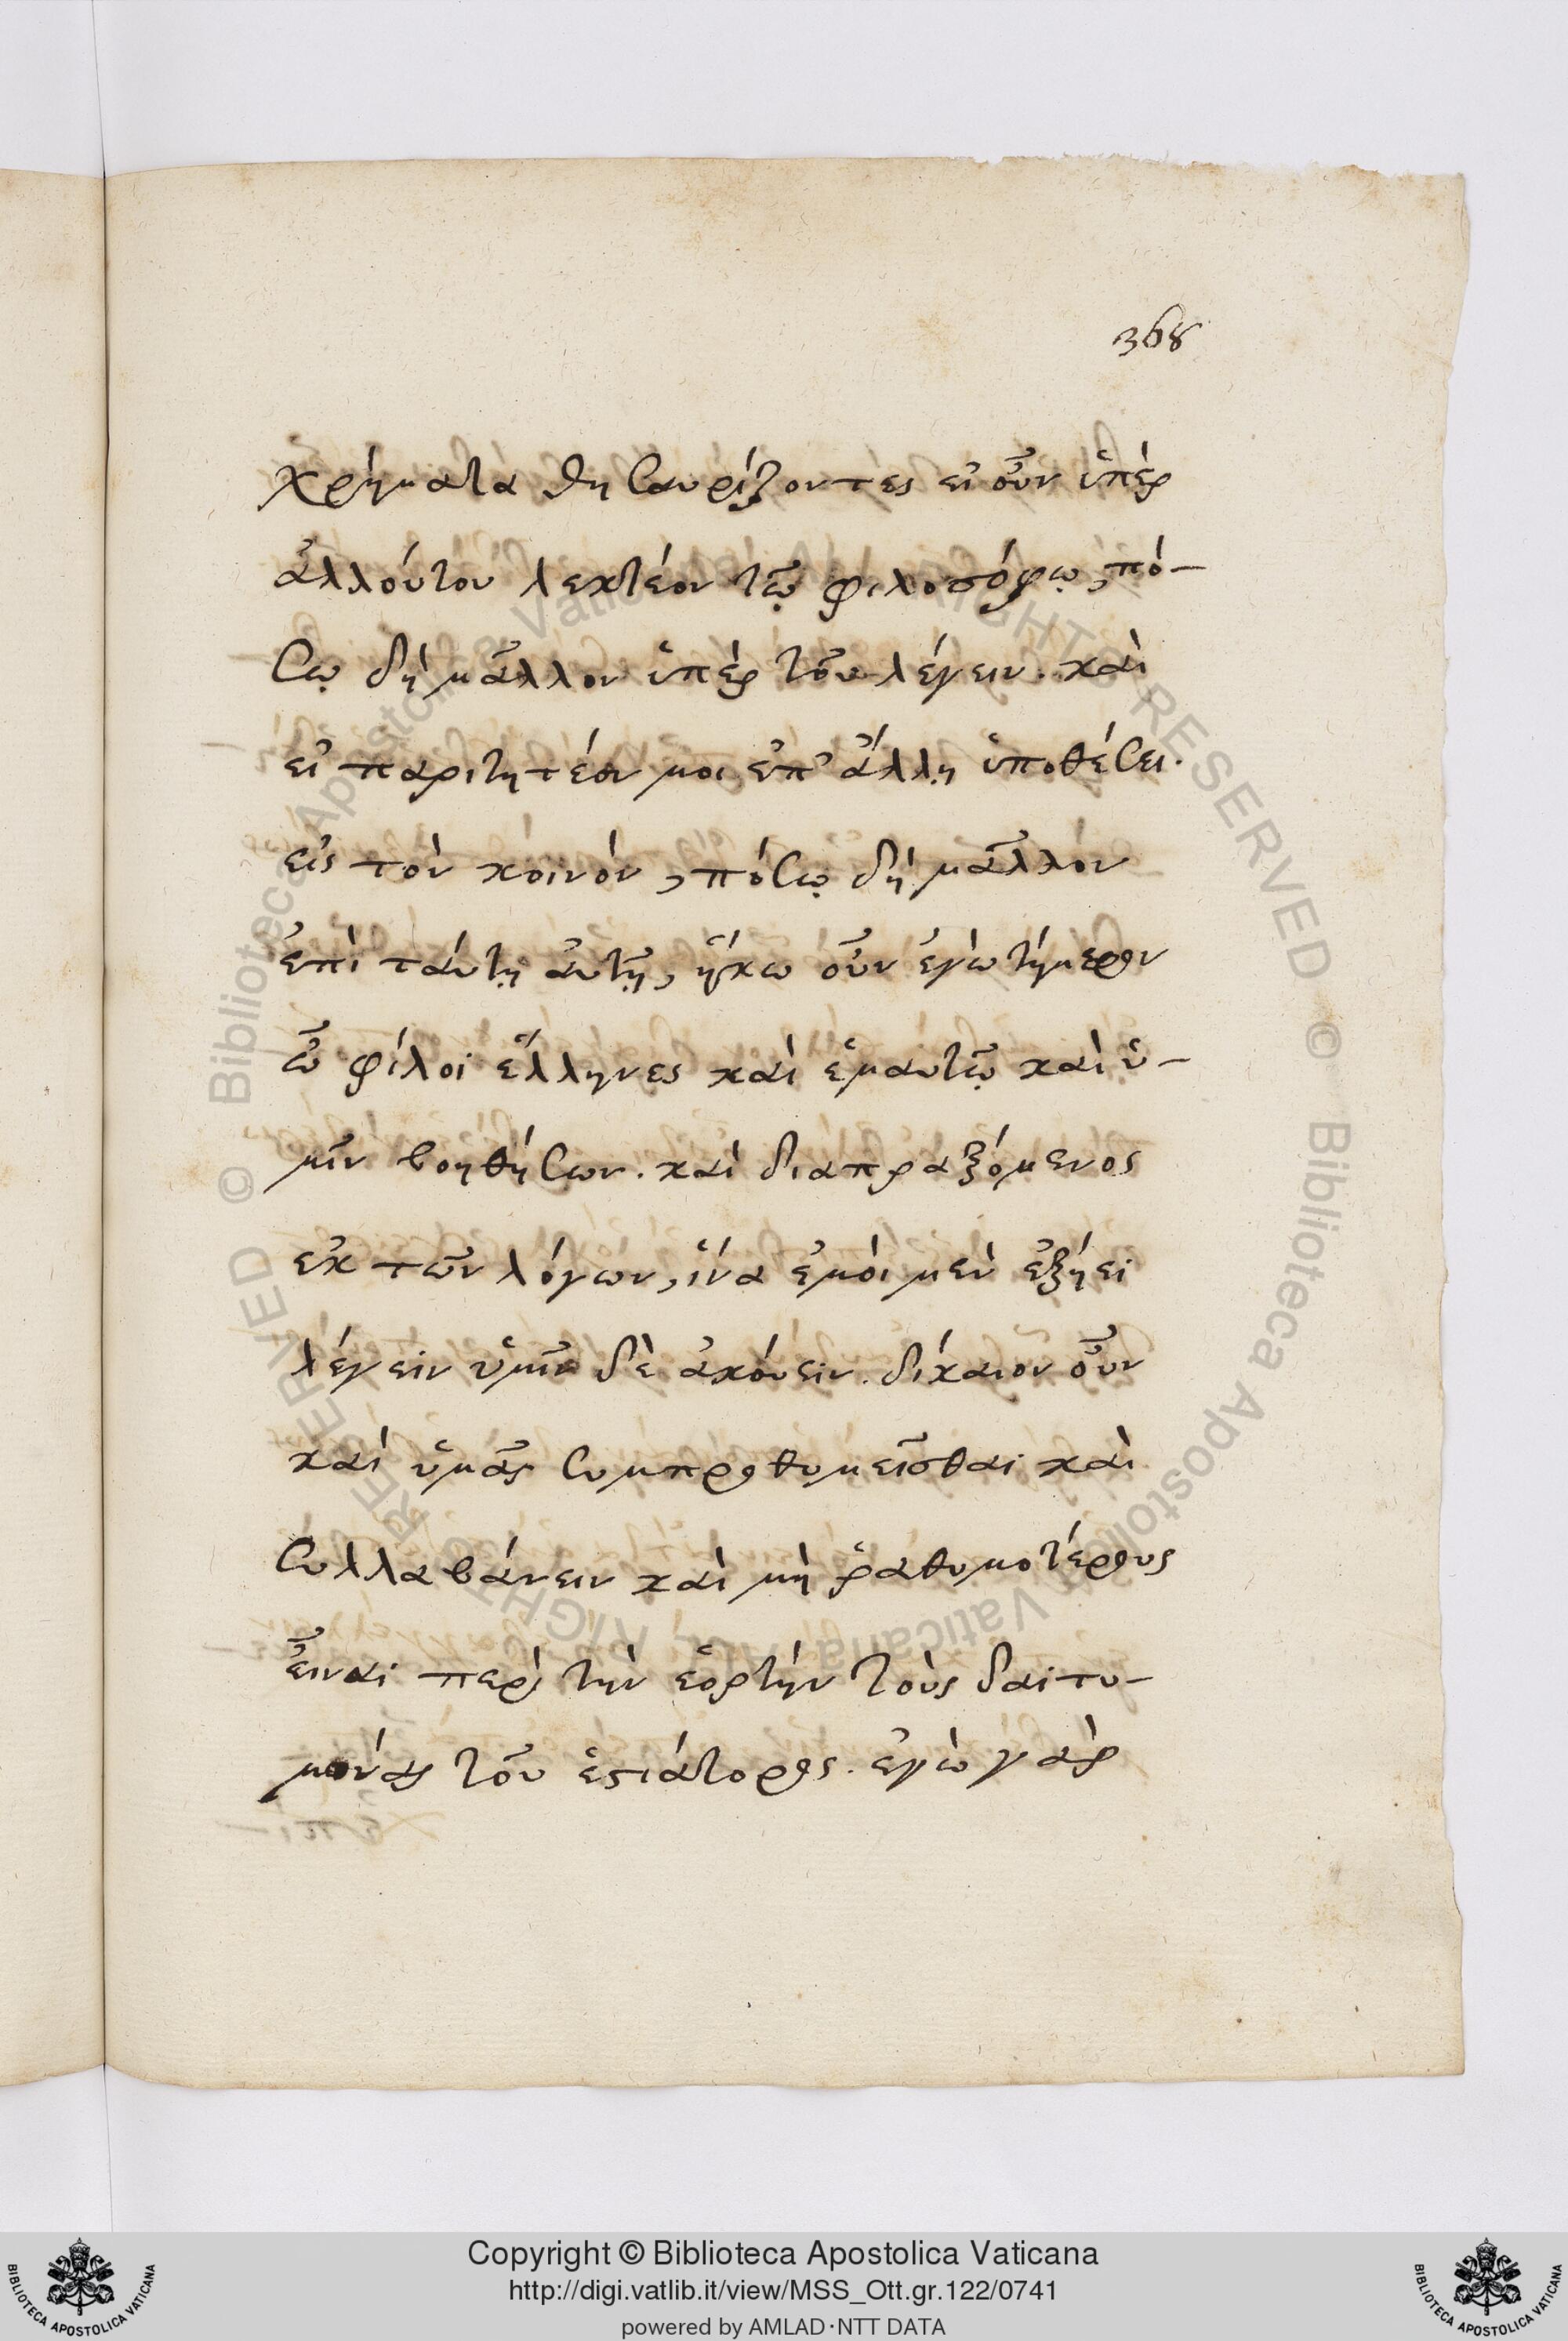 368
χρήματα θησαυρίζοντες εἰ οὖν ὑπὲρ
ἀλλούτου λεκτέον τῶ φιλοσόφῳ, πό-
σῳ δὴ μᾶλλον ὑπὲρ τοῦ λέγειν. καὶ
εἰ παριτητέον μοι ἐπ' ἄλλῃ ὑποθέσει.
εἰς τὸν κοινόν, πόσῳ δὴ μᾶλλον
ἐπὶ ταύτῃ αὐτῇ, ἥκω οὖν ἐγὼ τήμερον
ὦ φίλοι ἕλληνες καὶ ἐμαυτῷ καὶ ὑ-
μῖν βοηθήσων. καὶ διαπραξόμενος
ἐκ τῶν λόγων, ἵνα ἐμοὶ μὲν ἐξήει
λέγειν ὑμῖν δὲ ἀκούειν. δίκαιον οὖν
καὶ ὑμᾶς συμπροθυμεῖσθαι καὶ
συλλαβάνειν καὶ μὴ ῥαθυμοτέρους
εἶναι περὶ τὴν ἑορτὴν τοὺς δαιτυ-
μόνας τοῦ ἑστιάτορος. ἐγὼ γὰρ
Copyright © Biblioteca Apostolica Vaticana
http://digi.vatlib.it/view/MSS_Ott.gr.122/0741
powered by AMLAD·NTT DATA